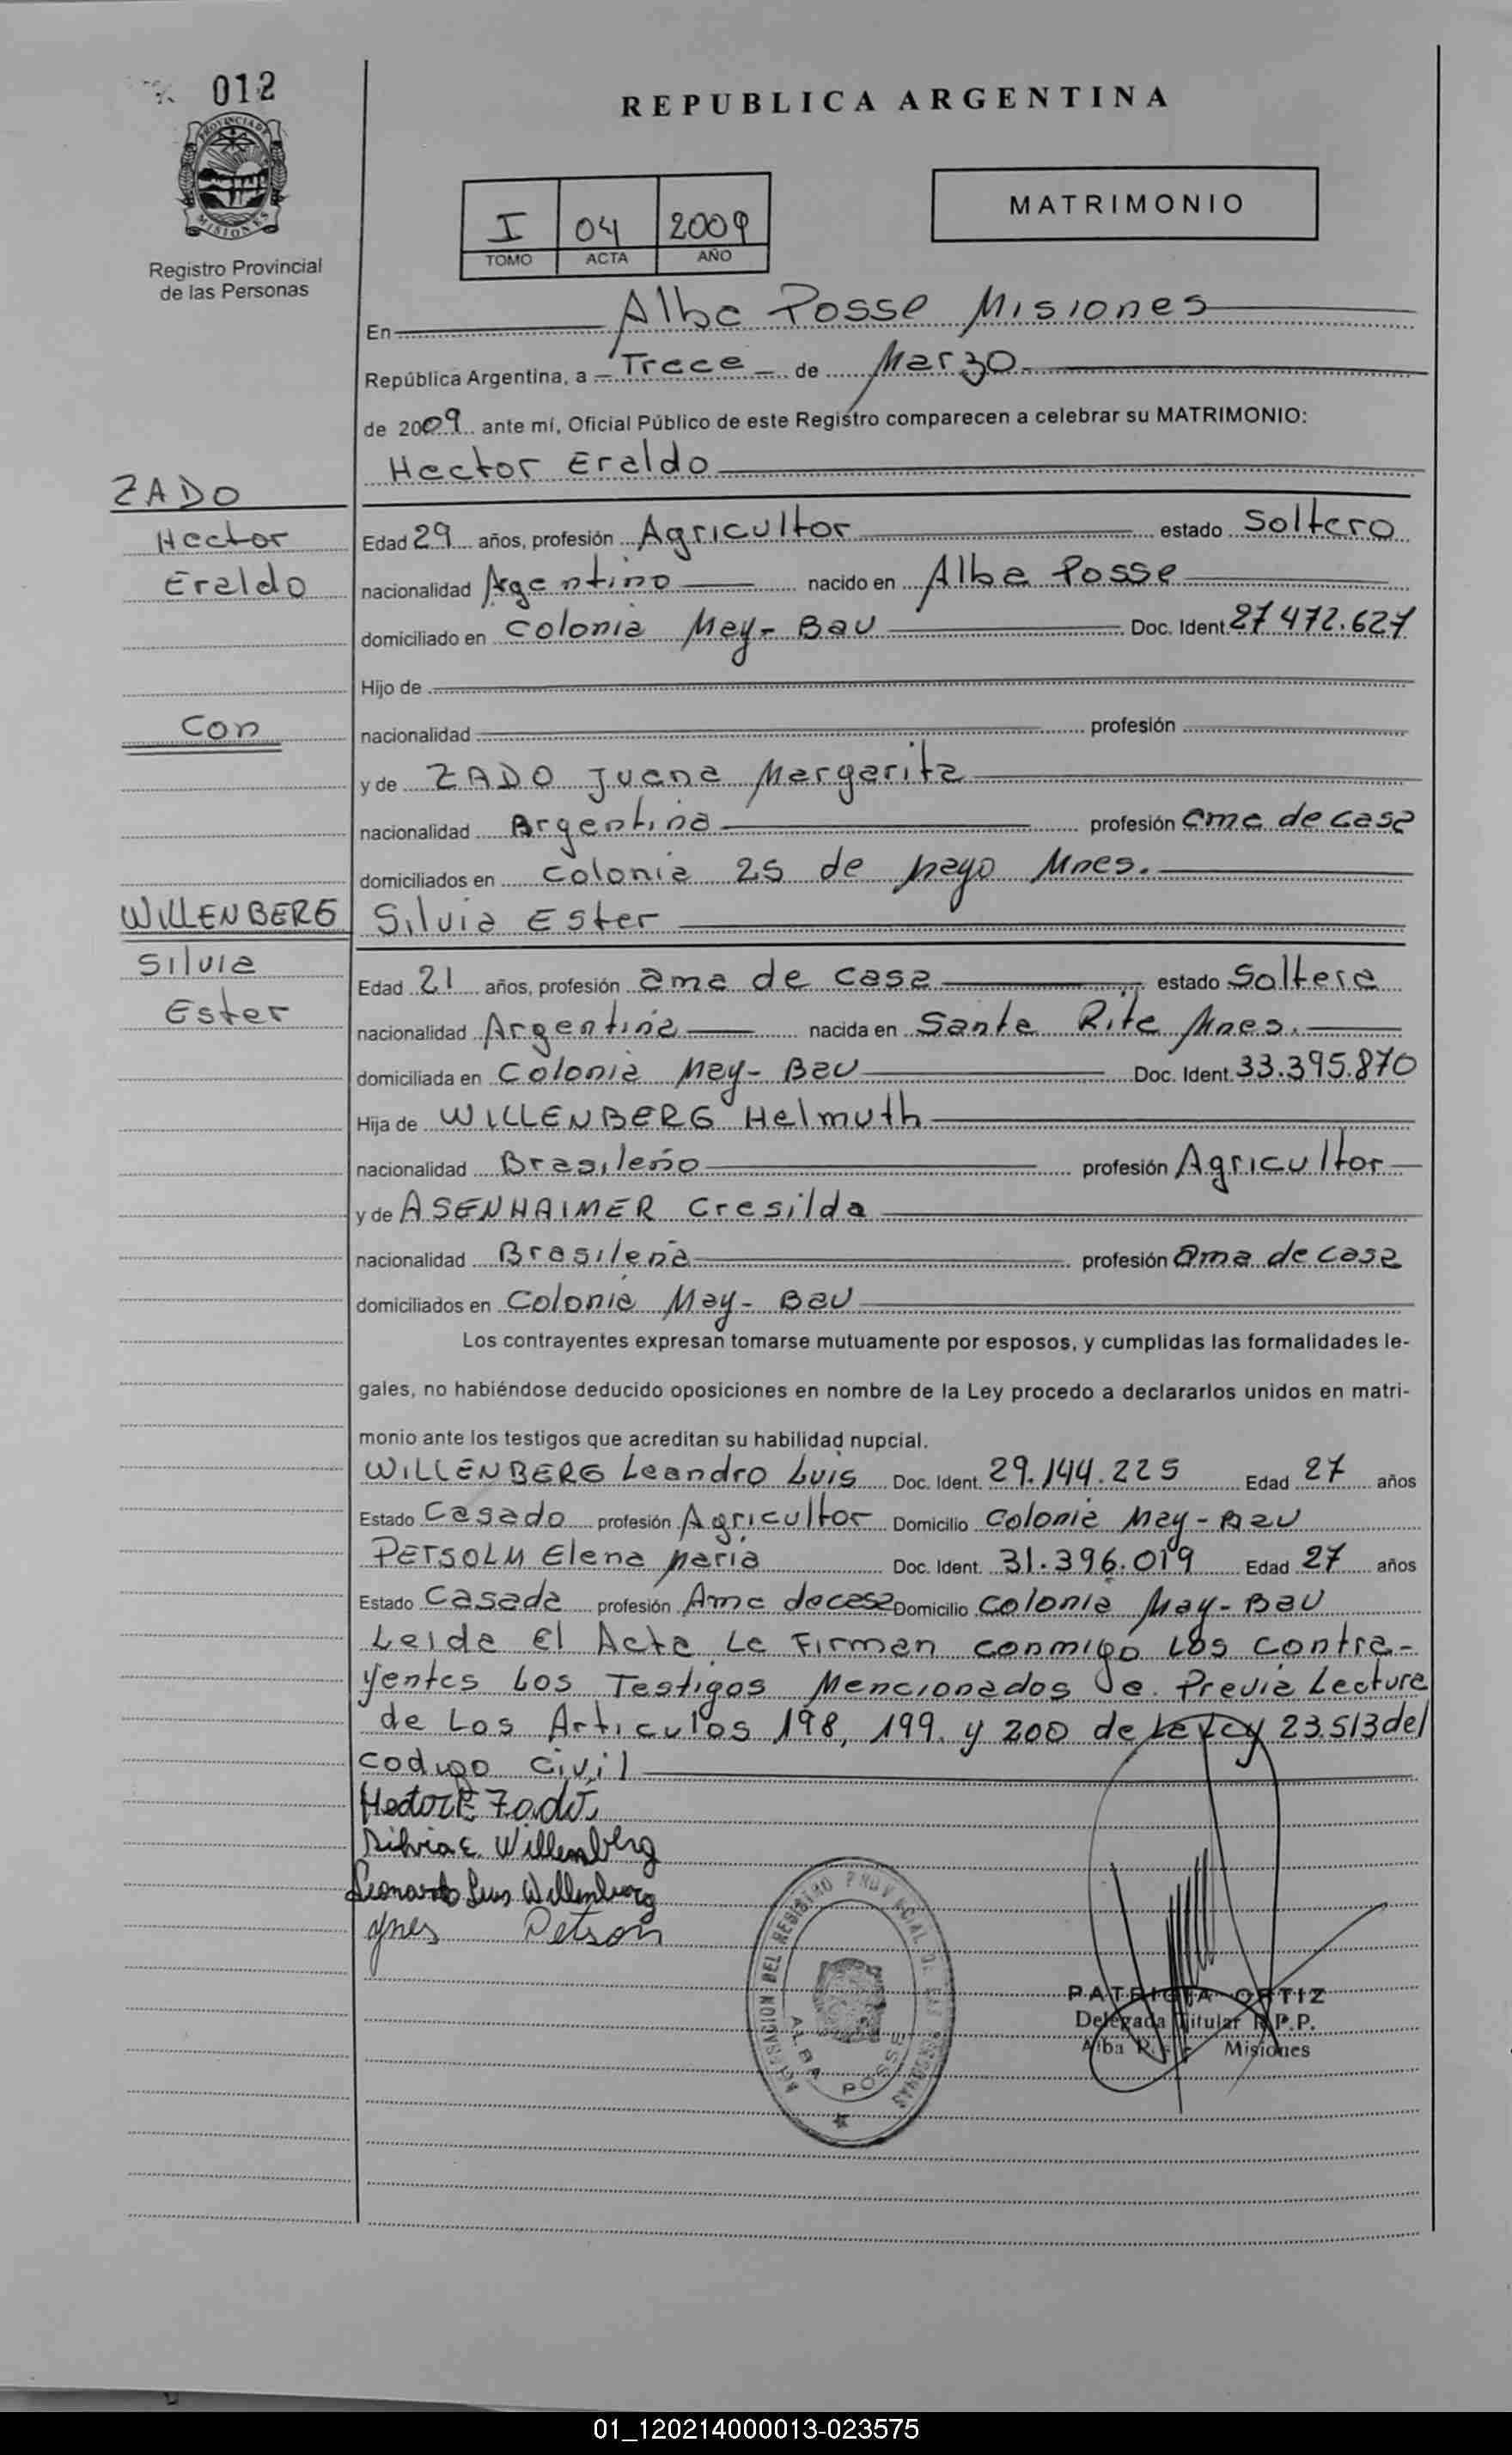 012
PROVINCIA DE
MISIONES
Registro Provincial
de las Personas
REPUBLICA ARGENTINA
I 04 2009
TOMO ACTA AÑO
MATRIMONIO
En Alba Posse Misiones
República Argentina, a Trece de Marzo
de 2009 ante mí, Oficial Público de este Registro comparecen a celebrar su MATRIMONIO:
Hector Eraldo
ZADO
Hector
Eraldo
Edad 29 años, profesión Agricultor estado Soltero
nacionalidad Argentino nacido en Alba Posse
domiciliado en Colonia May-Bau Doc. Ident. 27 472.627
Hijo de
Con
nacionalidad profesión
y de ZADO Juana Margarita
nacionalidad Argentina profesión ama de casa
domiciliados en Colonia 25 de Mayo Mnes.
WILLENBERG
Silvia
Ester
Silvia Ester
Edad 21 años, profesión ama de casa estado Soltera
nacionalidad Argentina nacida en Santa Rita Mnes.
domiciliada en Colonia May-Bau Doc. Ident. 33.395.870
Hija de WILLENBERG Helmuth
nacionalidad Brasileño profesión Agricultor
y de ASENHAIMER Cresilda
nacionalidad Brasileña profesión ama de casa
domiciliados en Colonia May-Bau
Los contrayentes expresan tomarse mutuamente por esposos, y cumplidas las formalidades le-
gales, no habiéndose deducido oposiciones en nombre de la Ley procedo a declararlos unidos en matri-
monio ante los testigos que acreditan su habilidad nupcial.
WILLENBERG Leandro Luis Doc. Ident. 29.144.225 Edad 27 años
Estado Casado profesión Agricultor Domicilio Colonia May-Bau
PETSOLM Elena Maria Doc. Ident. 31.396.019 Edad 27 años
Estado Casada profesión Ama de casa Domicilio Colonia May-Bau
Leida El Acta La Firman conmigo Los contra-
yentes Los Testigos Mencionados Previa Lectura
de Los Articulos 198, 199. y 200 de la Ley 23.513 del
codigo Civil
Hector E Zado
Silvia E. Willemberg
Leonardo Luis Willenberg
Petson
DELEGACION DEL REGISTRO PROVINCIAL DE LAS PERSONAS
ALBA POSSE
PATRICIA ORTIZ
Delegada Titular R.P.P.
Alba Posse Misiones
01_120214000013-023575